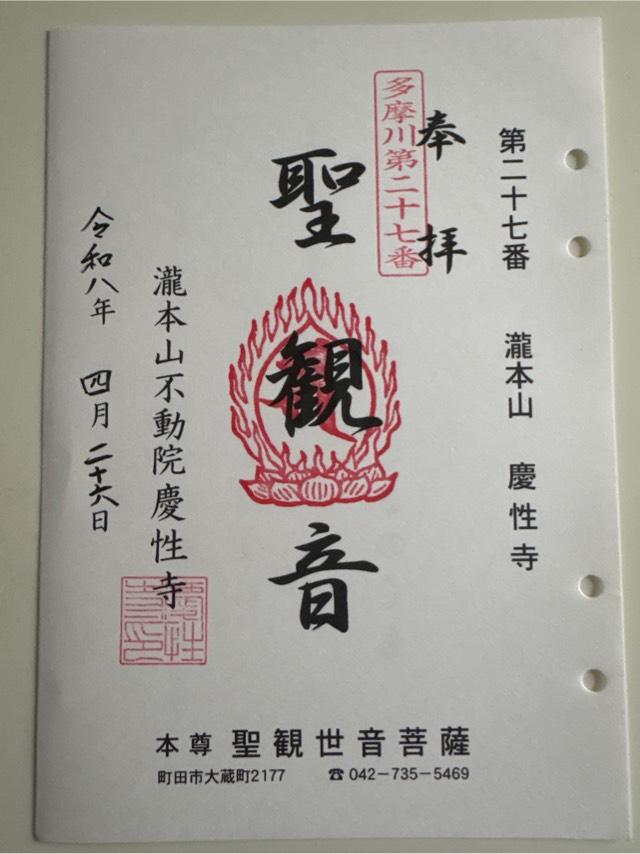 第二十七番 瀧本山 慶性寺
奉拝
多摩川第二十七番
聖観音
瀧本山不動院慶性寺
令和八年 四月二十六日
本尊 聖観世音菩薩
町田市大蔵町2177 ☎042-735-5469